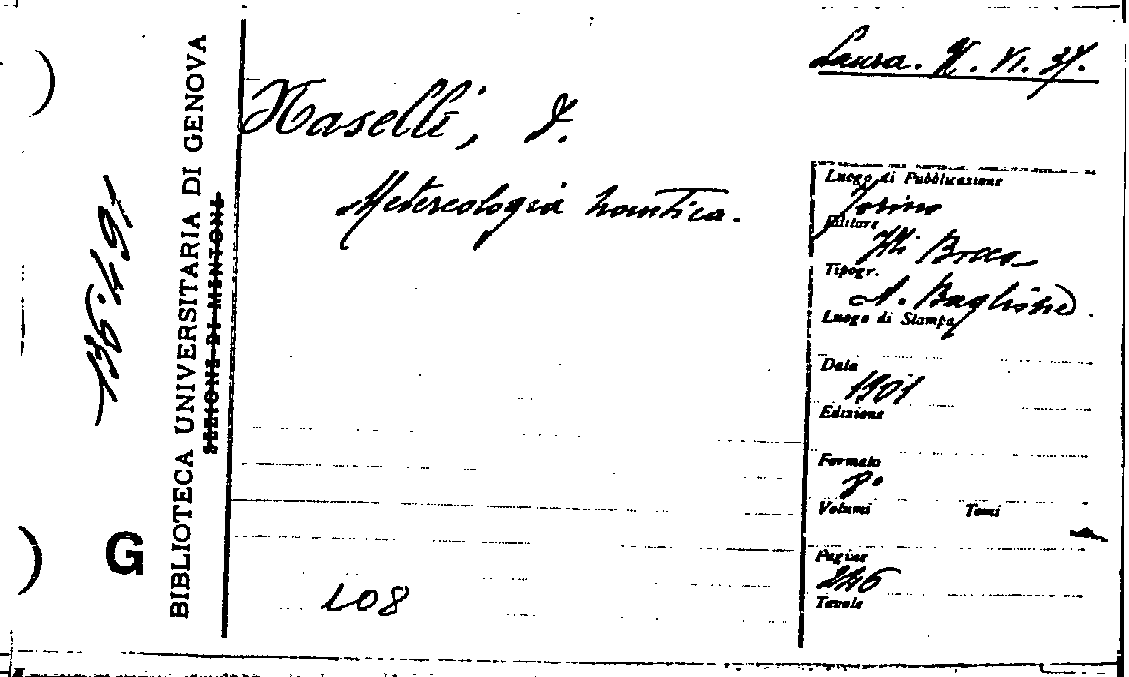 Laura. V. VI. 37.
Naselli, F.
Metereologia nautica.
Luogo di Pubblicazione
Torino
Editore
F.lli Bocca
Tipogr.
A. Baglione.
Luogo di Stampa
Data
1901
Edizione
Formato
8°
Volumi Tomi
Pagine
246
Tavole
LO8
BIBLIOTECA UNIVERSITARIA DI GENOVA
SEZIONE DI MENTONE
G